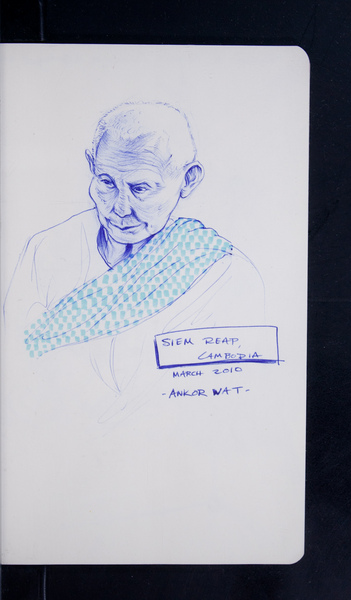 SIEM REAP,
CAMBODIA
MARCH 2010
-ANKOR WAT-